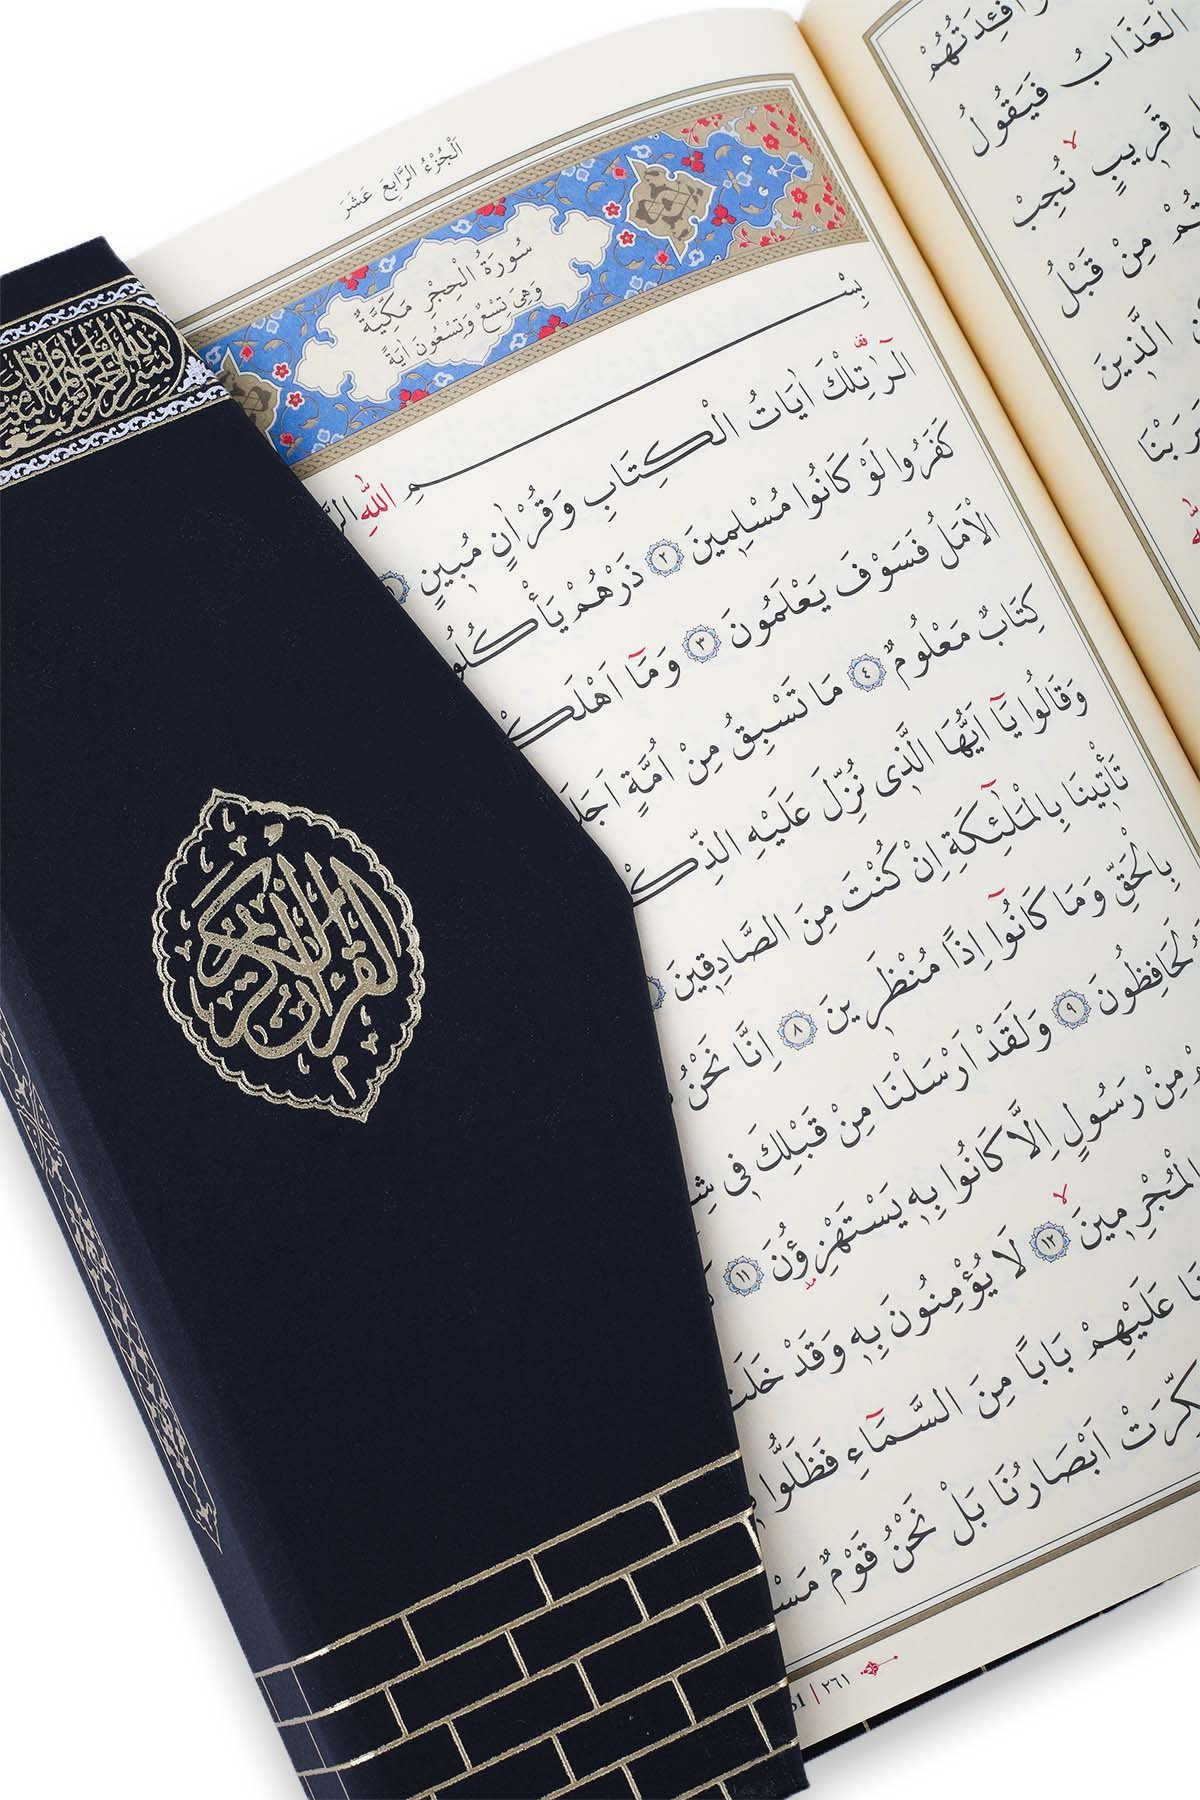 اَلْجُزْءُ الرَّابِعَ عَشَرَ
سُورَةُ الْحِجْرِ مَكِّيَّةٌ
وَهِيَ تِسْعٌ وَتِسْعُونَ اٰيَةً
بِسْــــمِ اللّٰهِ
الٓرٰ تِلْكَ اٰيَاتُ الْكِتَابِ وَقُرْاٰنٍ مُبينٍ ١
كَفَرُوا لَوْ كَانُوا مُسْلِمينَ ٢ ذَرْهُمْ يَأْكُلُوا
الْاَمَلُ فَسَوْفَ يَعْلَمُونَ ٣ وَمَٓا اَهْلَكْ
كِتَابٌ مَعْلُومٌ ٤ مَا تَسْبِقُ مِنْ اُمَّةٍ اَجَلَ
وَقَالُوا يَٓا اَيُّهَا الَّذى نُزِّلَ عَلَيْهِ الذِّكْ
تَأْتينَا بِالْمَلٰٓئِكَةِ اِنْ كُنْتَ مِنَ الصَّادِقينَ
بِالْحَقِّ وَمَا كَانُٓوا اِذًا مُنْظَرينَ ٨ اِنَّا نَحْنُ
لَحَافِظُونَ ٩ وَلَقَدْ اَرْسَلْنَا مِنْ قَبْلِكَ فى شِ
مِنْ رَسُولٍ اِلَّا كَانُوا بِه يَسْتَهْزِؤُنَ ١١
الْمُجْرِمينَ ١٢ لَا يُؤْمِنُونَ بِه وَقَدْ خَلَتْ
عَلَيْهِمْ بَابًا مِنَ السَّمَٓاءِ فَظَلُّوا
كِّرَتْ اَبْصَارُنَا بَلْ نَحْنُ قَوْمٌ مَسْ
٢٦١
اَفْئِدَتُهُمْ
الْعَذَابُ فَيَقُولُ
قَريبٍ نُجِبْ
مِنْ قَبْلُ
الَّذينَ
القرآن الكريم